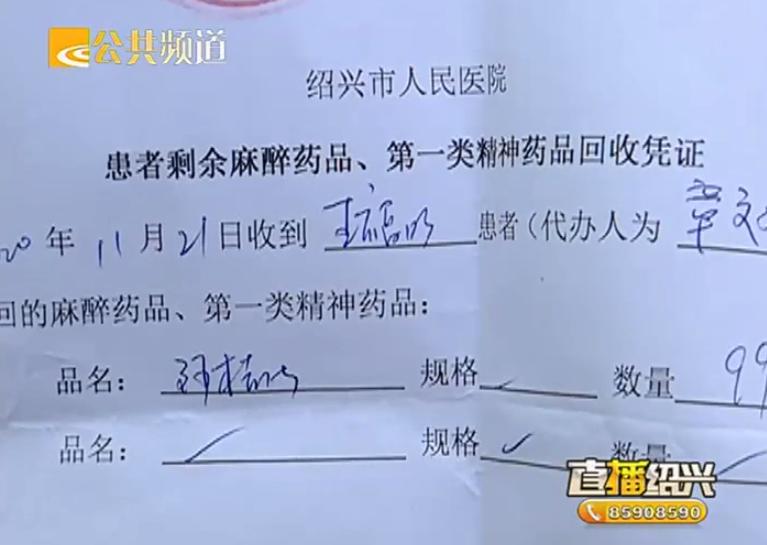 公共频道
绍兴市人民医院
患者剩余麻醉药品、第一类精神药品回收凭证
20 年 11 月 21 日收到 患者（代办人为 章文
回的麻醉药品、第一类精神药品：
品名： 规格 数量 99
品名： 规格 数量
直播绍兴
85908590